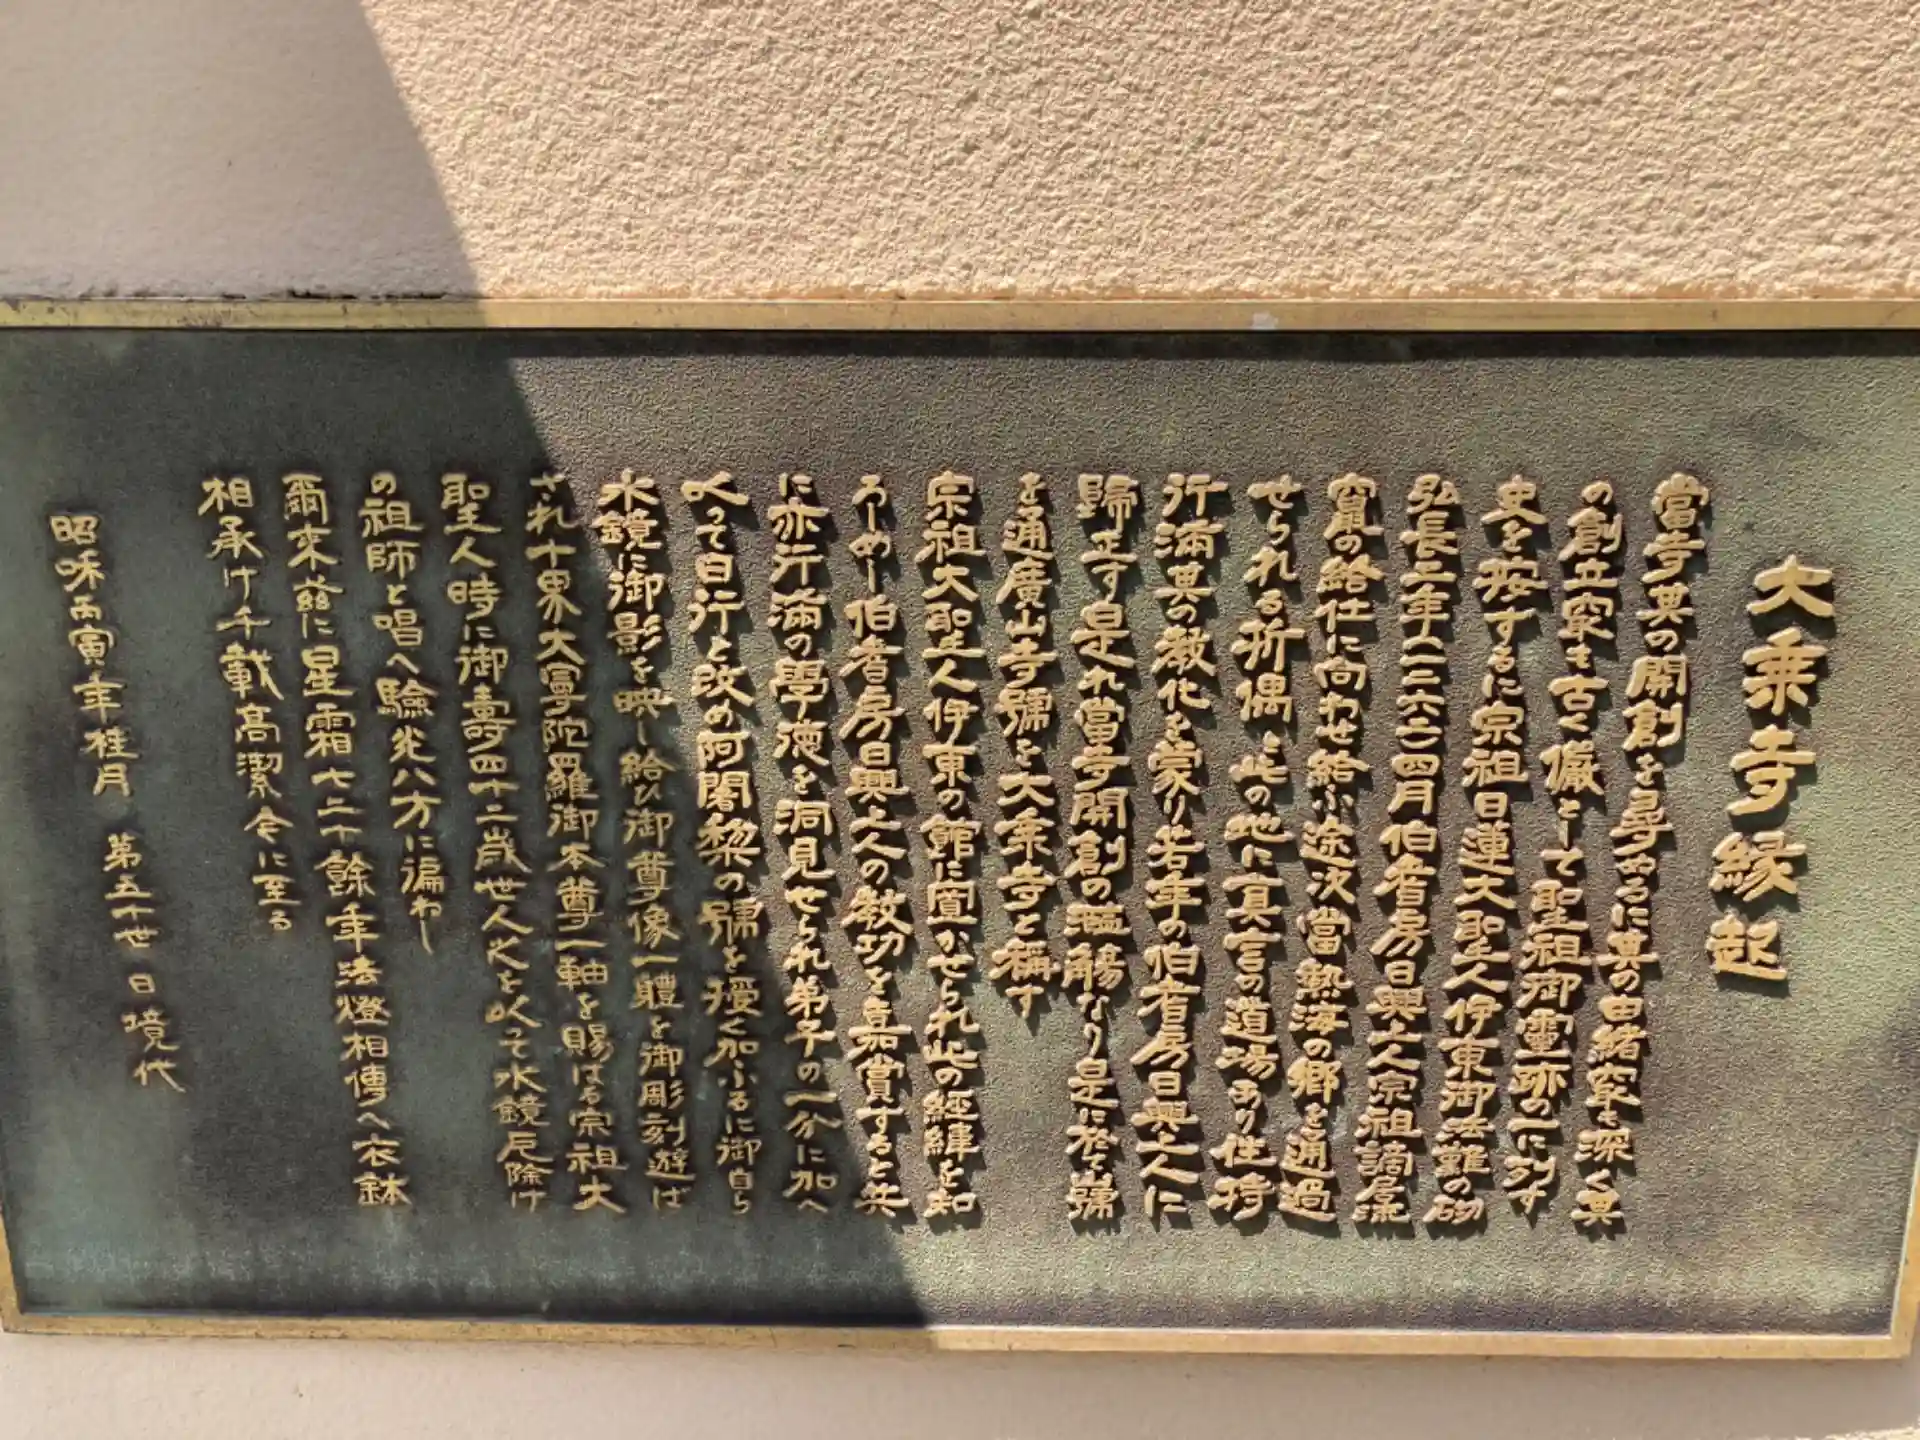 大乗寺縁起
當寺其の開創を尋ぬるに其の由緒寔も深く其
の創立寔も古く儼として聖祖御霊跡の一に列す
史を按するに宗祖日蓮大聖人伊東御法難の砌
弘長二年(一二六二)四月伯耆房日興上人宗祖謫居流
竄の給仕に向わせ給ふ途次當熱海の郷を通過
せられる折偶々此の地に真言の道場あり住持
行満其の教化を蒙り若年の伯耆房日興上人に
歸正す是れ當寺開創の濫觴なり是に於て號
を通廣山寺號を大乗寺と稱す
宗祖大聖人伊東の館に寛かせられ此の經緯を知
ろしめし伯耆房日興上人の教功を嘉賞すると共
に亦行満の學徳を洞見せられ弟子の一分に加へ
以って日行と改め阿闍黎の號を授く加ふるに御自ら
水鏡に御影を映し給ひ御尊像一軆を御彫刻遊ば
され十界大曼陀羅御本尊一軸を賜はる宗祖大
聖人時に御壽四十二歳世人以って水鏡厄除け
の祖師と唱へ驗光八方に遍わし
爾来茲に星霜七二十餘年法燈相傳へ衣鉢
相承け千載高潔令に至る
昭和丙寅年桂月 第五十世 日境代